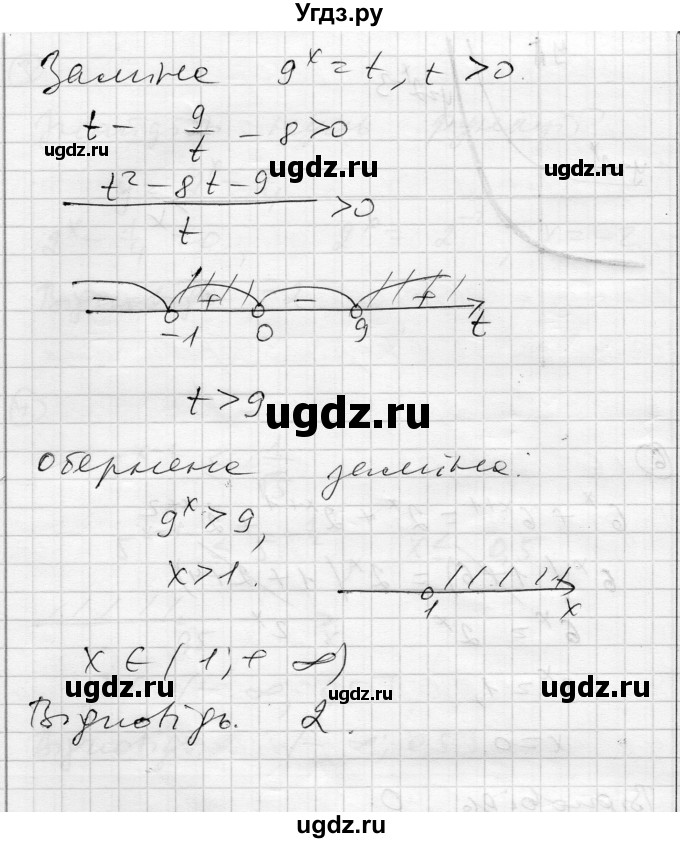 Угдз.ру
Заміна 9^x = t, t > 0.
t - 9/t - 8 > 0
ugdz.ru
ugdz.ru
ugdz.ru
(t² - 8t - 9)/t > 0
- + - +
-1 0 9 t
t > 9
ugdz.ru
Обернена заміна:
9^x > 9,
x > 1.
1 x
x ∈ (1; + ∞)
ugdz.ru
ugdz.ru
ugdz.ru
Відповідь. 2.
ugdz.ru